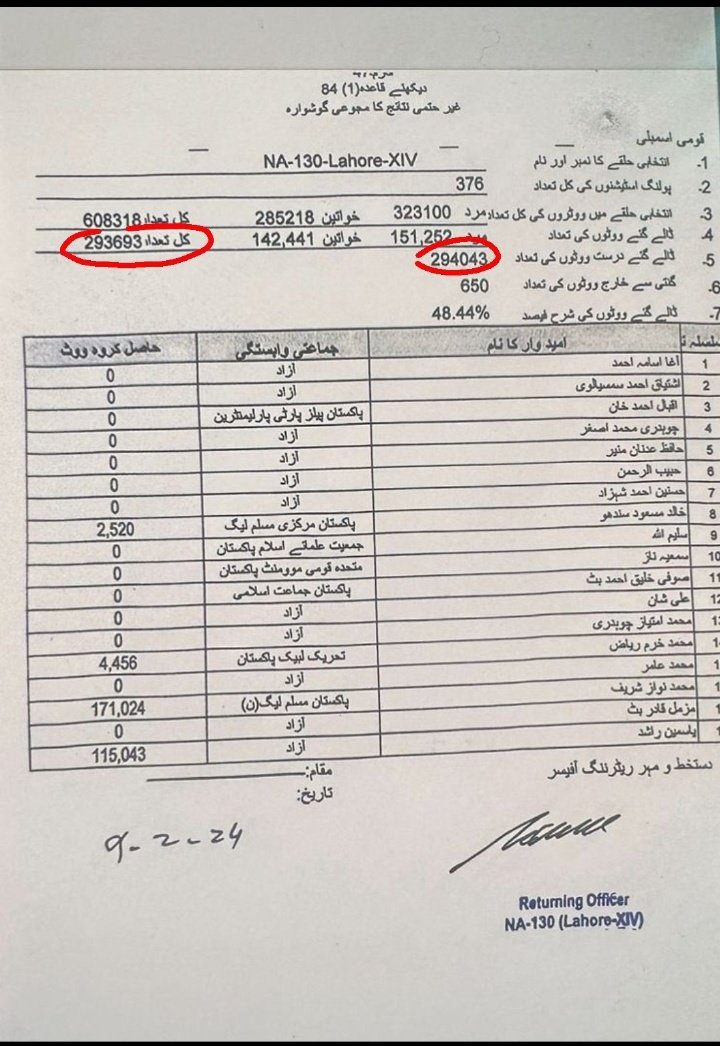 دیکھئے قاعدہ(1) 84
غیر حتمی نتائج کا مجموعی گوشوارہ
قومی اسمبلی
1- انتخابی حلقے کا نمبر اور نام NA-130-Lahore-XIV
2- پولنگ اسٹیشنوں کی کل تعداد 376
3- انتخابی حلقے میں ووٹروں کی کل تعداد مرد 323100 خواتین 285218 کل تعداد 608318
4- ڈالے گئے ووٹوں کی تعداد مرد 151,252 خواتین 142,441 کل تعداد 293693
5- ڈالے گئے درست ووٹوں کی تعداد 294043
6- گنتی سے خارج ووٹوں کی تعداد 650
7- ڈالے گئے ووٹوں کی شرح فیصد 48.44%
سلسلہ امیدوار کا نام جماعتی وابستگی حاصل کردہ ووٹ
1 آغا اسامہ احمد آزاد 0
2 اشتیاق احمد سمسیالوی آزاد 0
3 اقبال احمد خان پاکستان پیپلز پارٹی پارلیمنٹرین 0
4 چوہدری محمد اصغر آزاد 0
5 حافظ عدنان منیر آزاد 0
6 حبیب الرحمن آزاد 0
7 حسنین احمد شہزاد آزاد 0
8 خالد مسعود سندھو پاکستان مرکزی مسلم لیگ 2,520
9 سلیم اللہ جمعیت علمائے اسلام پاکستان 0
10 سمعیہ ناز متحدہ قومی موومنٹ پاکستان 0
11 صوفی خلیق احمد بٹ پاکستان جماعت اسلامی 0
12 علی شان آزاد 0
محمد امتیاز چوہدری آزاد 0
محمد خرم ریاض تحریک لبیک پاکستان 4,456
محمد عامر آزاد 0
محمد نواز شریف پاکستان مسلم لیگ(ن) 171,024
مزمل قادر بٹ آزاد 0
یاسمین راشد آزاد 115,043
دستخط و مہر ریٹرننگ آفیسر
مقام:
تاریخ:
9-2-24
Returning Officer
NA-130 (Lahore-XIV)